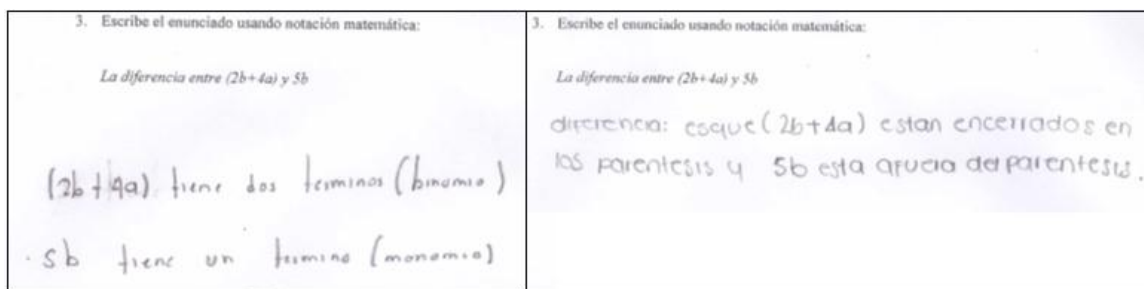 3. Escribe el enunciado usando notación matemática:
La diferencia entre (2b+4a) y 5b
(2b+4a) tiene dos terminos (binomio)
. 5b tiene un termino (monomio)
3. Escribe el enunciado usando notación matemática:
La diferencia entre (2b+4a) y 5b
diferencia: esque (2b+4a) estan encerrados en
los parentesis y 5b esta afuera del parentesis.